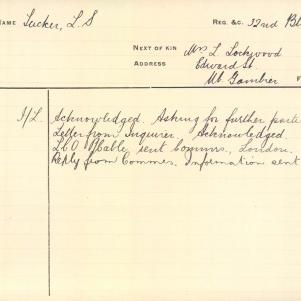 NAME Tucker, L. S REG. &C. 32nd Bt
NEXT OF KIN Mrs L Lockwood
ADDRESS Edward St.
Mt. Gambier F
I/L Acknowledged. Asking for further parti
Letter from Inquirer, Acknowledged.
Cable sent Commrs., London.
Reply from Commrs. Information sent